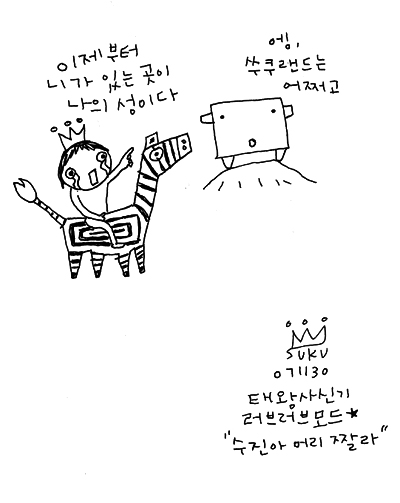 이제부터
니가 있는 곳이
나의 성이다
에잉,
쑤쿠랜드는
어쩌고
SUKU
071130
태왕사신기
러브러브모드★
"수진아 머리 짤라"